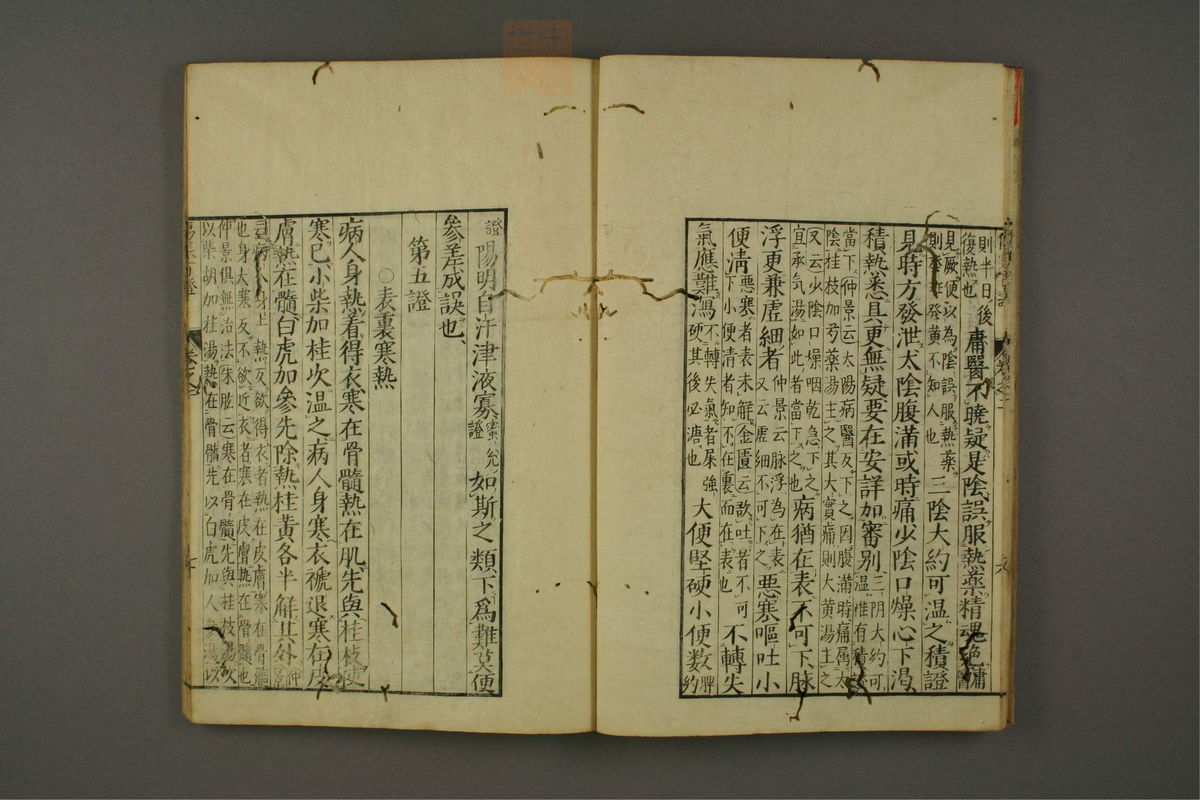 則半日後
復熱也
庸醫不曉疑是陰誤服熱藥精魂
見厥便以為陰誤服熱藥
則發斑發黃不知人也
三陰大約可溫之積證
見時方發泄太陰腹滿或時痛少陰口燥心下渴
積熱悉具更無疑要在安詳加審別
三阴大約可
溫惟有積
當下仲景云太陽病醫反下之因腹滿時痛属太
陰桂枝加芍藥湯主之其大實痛則大黄湯主之
又云少陰口燥咽乾急下之
宜承氣湯如此者當下之也
病猶在表不可下脉
浮更兼虛細者
仲景云脉浮為在表
又云虛細不可下之
惡寒嘔吐小
便清
惡寒者表未解金匱云欬吐者不可
下小便清者知不在裏而在表也
不轉失
氣應難瀉
不轉失氣者屎
硬其後必溏也
大便堅硬小便数
脾約
證
陽明自汗津液寡
蜜
證
如斯之類下為難莫便
參差成誤也
第五證
○表裏寒熱
病人身熱着得衣寒在骨髓熱在肌先與桂枝使
寒已小柴加桂次温之病人身寒衣褫退寒在皮
膚熱在髓白虎加參先除熱桂黄各半解其外
仲景
云病
身上熱反欲得衣者熱在皮膚寒在骨髓
也身大寒反不欲近衣者寒在皮膚熱在骨髓也
仲景俱無治法朱肱云寒在骨髓先與桂枝湯次
以柴胡加桂湯熱在骨髓先以白虎加人參湯次